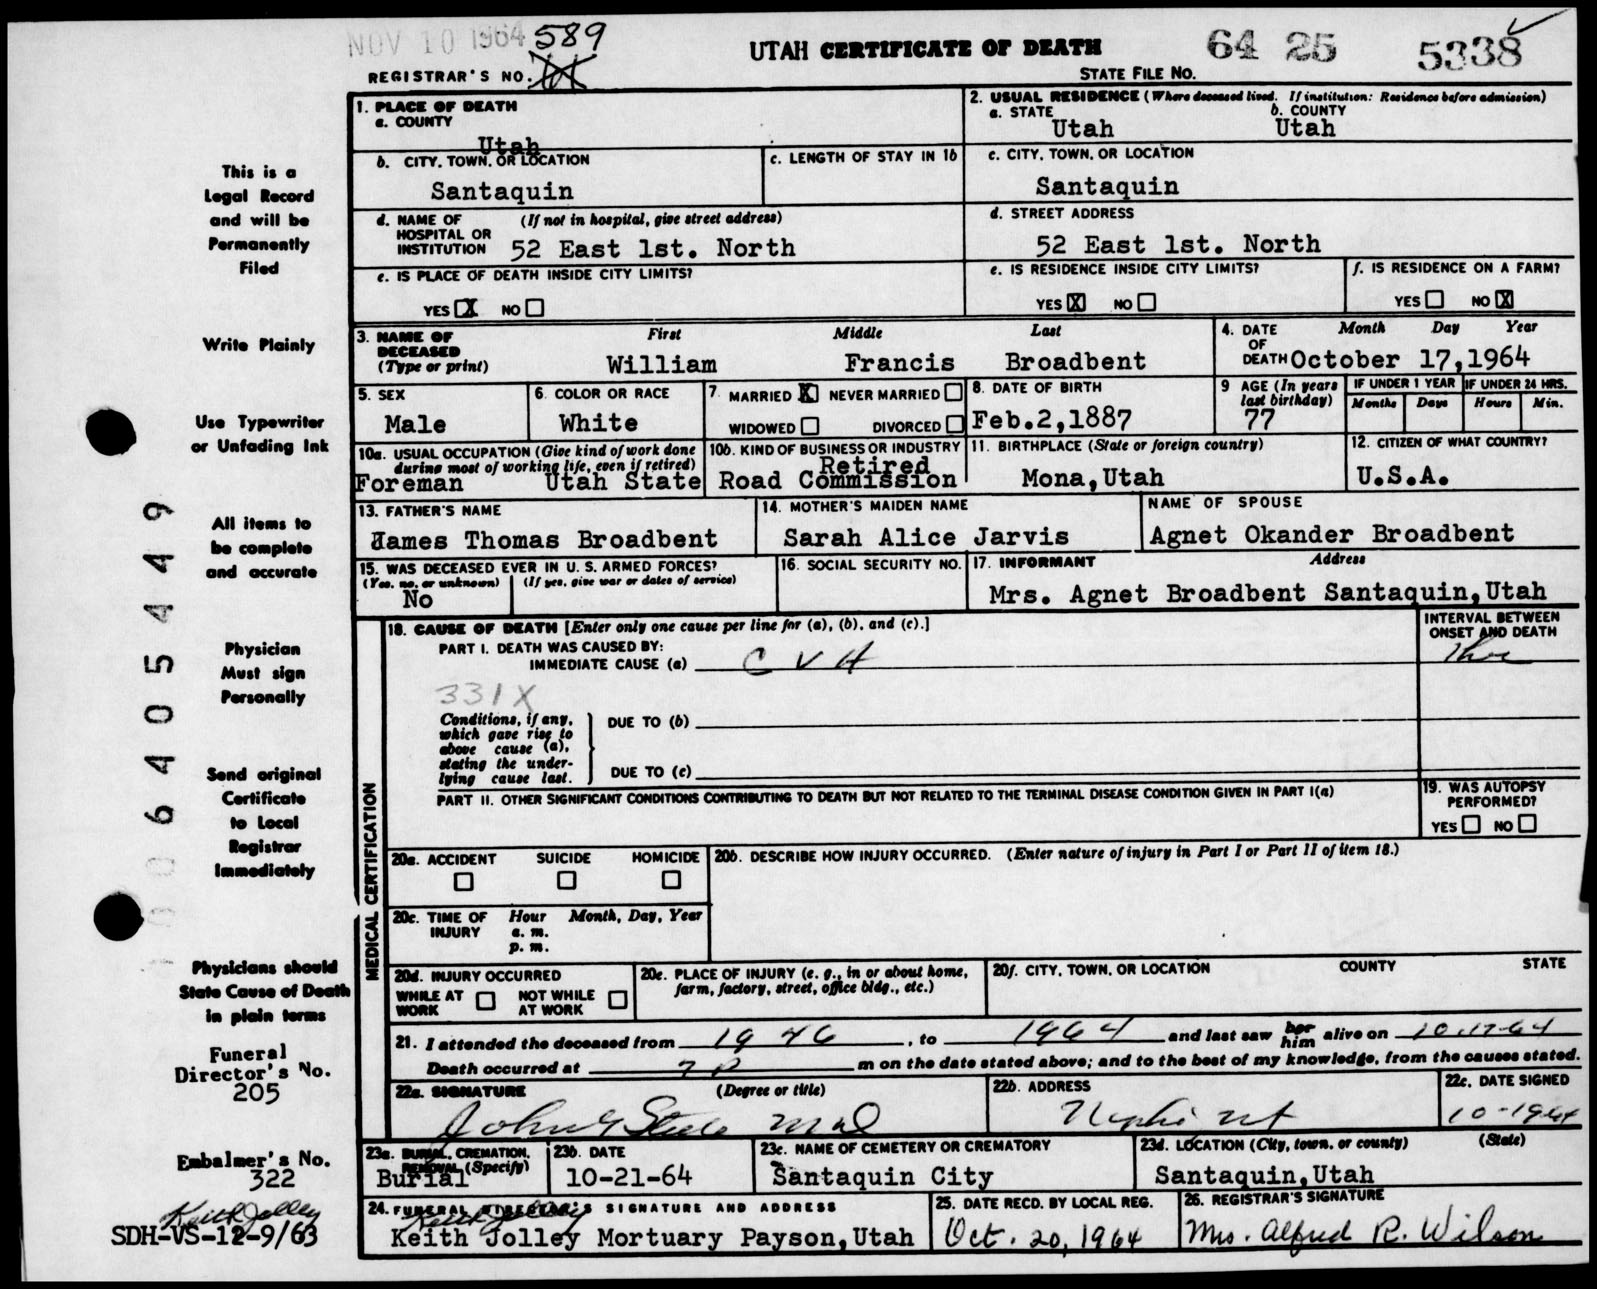 NOV 10 1964 589
UTAH CERTIFICATE OF DEATH 64 25 5338
REGISTRAR'S NO. STATE FILE NO.
1. PLACE OF DEATH
a. COUNTY
Utah
2. USUAL RESIDENCE (Where deceased lived. If institution: Residence before admission)
a. STATE b. COUNTY
Utah Utah
b. CITY, TOWN, OR LOCATION c. LENGTH OF STAY IN 1b
Santaquin
c. CITY, TOWN, OR LOCATION
Santaquin
d. NAME OF HOSPITAL OR INSTITUTION (If not in hospital, give street address)
52 East 1st. North
d. STREET ADDRESS
52 East 1st. North
e. IS PLACE OF DEATH INSIDE CITY LIMITS?
YES X NO
e. IS RESIDENCE INSIDE CITY LIMITS? f. IS RESIDENCE ON A FARM?
YES X NO YES NO X
3. NAME OF DECEASED (Type or print) First Middle Last
William Francis Broadbent
4. DATE OF DEATH Month Day Year
October 17,1964
5. SEX 6. COLOR OR RACE 7. MARRIED X NEVER MARRIED
Male White WIDOWED DIVORCED
8. DATE OF BIRTH
Feb.2,1887
9 AGE (In years last birthday) IF UNDER 1 YEAR IF UNDER 24 HRS.
77 Months Days Hours Min.
10a. USUAL OCCUPATION (Give kind of work done during most of working life, even if retired)
Foreman Utah State
10b. KIND OF BUSINESS OR INDUSTRY
Retired
Road Commission
11. BIRTHPLACE (State or foreign country)
Mona,Utah
12. CITIZEN OF WHAT COUNTRY?
U.S.A.
13. FATHER'S NAME
James Thomas Broadbent
14. MOTHER'S MAIDEN NAME
Sarah Alice Jarvis
NAME OF SPOUSE
Agnet Okander Broadbent
15. WAS DECEASED EVER IN U. S. ARMED FORCES?
(Yes, no, or unknown) (If yes, give war or dates of service)
No
16. SOCIAL SECURITY NO.
17. INFORMANT Address
Mrs. Agnet Broadbent Santaquin,Utah
MEDICAL CERTIFICATION
18. CAUSE OF DEATH [Enter only one cause per line for (a), (b), and (c).]
INTERVAL BETWEEN ONSET AND DEATH
PART I. DEATH WAS CAUSED BY:
IMMEDIATE CAUSE (a) C V A
331X
Conditions, if any, which gave rise to above cause (a), stating the underlying cause last.
DUE TO (b)
DUE TO (c)
PART II. OTHER SIGNIFICANT CONDITIONS CONTRIBUTING TO DEATH BUT NOT RELATED TO THE TERMINAL DISEASE CONDITION GIVEN IN PART I(a)
19. WAS AUTOPSY PERFORMED?
YES NO
20a. ACCIDENT SUICIDE HOMICIDE
20b. DESCRIBE HOW INJURY OCCURRED. (Enter nature of injury in Part I or Part II of item 18.)
20c. TIME OF INJURY Hour Month, Day, Year
a. m.
p. m.
20d. INJURY OCCURRED
WHILE AT WORK NOT WHILE AT WORK
20e. PLACE OF INJURY (e. g., in or about home, farm, factory, street, office bldg., etc.)
20f. CITY, TOWN, OR LOCATION COUNTY STATE
21. I attended the deceased from 1946, to 1964 and last saw her him alive on 10-17-64
Death occurred at 7 P m on the date stated above; and to the best of my knowledge, from the causes stated.
22a. SIGNATURE (Degree or title)
John G Steele M D
22b. ADDRESS
Nephi Ut
22c. DATE SIGNED
10-1964
23a. BURIAL, CREMATION, REMOVAL (Specify)
Burial
23b. DATE
10-21-64
23c. NAME OF CEMETERY OR CREMATORY
Santaquin City
23d. LOCATION (City, town, or county) (State)
Santaquin,Utah
24. FUNERAL DIRECTOR'S SIGNATURE AND ADDRESS
Keith Jolley
Keith Jolley Mortuary Payson,Utah
25. DATE RECD. BY LOCAL REG.
Oct. 20, 1964
26. REGISTRAR'S SIGNATURE
Mrs. Alfred R. Wilson
This is a
Legal Record
and will be
Permanently
Filed
Write Plainly
Use Typewriter
or Unfading Ink
All items to
be complete
and accurate
Physician
Must sign
Personally
Send original
Certificate
to Local
Registrar
Immediately
Physicians should
State Cause of Death
in plain terms
Funeral
Director's No.
205
Embalmer's No.
322
Keith Jolley
SDH-VS-12-9/63
006405449